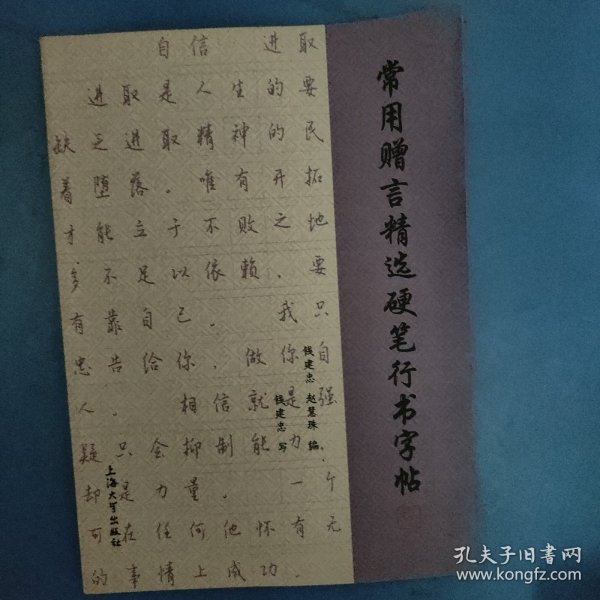 常用赠言精选硬笔行书字帖
自信 进取
进取是人生的要
缺乏进取精神的民
着堕落。唯有开拓
才能立于不败之地
多不足以依赖,要
有靠自己。 我只
忠告给你,做你自
人。 相信就是强
疑只会抑制能力,
却是力量。 一个
可在任何他怀有无
的事情上成功.
钱建忠 赵慧珠 编
钱建忠 写
上海大学出版社
孔夫子旧书网
www.kongfz.com